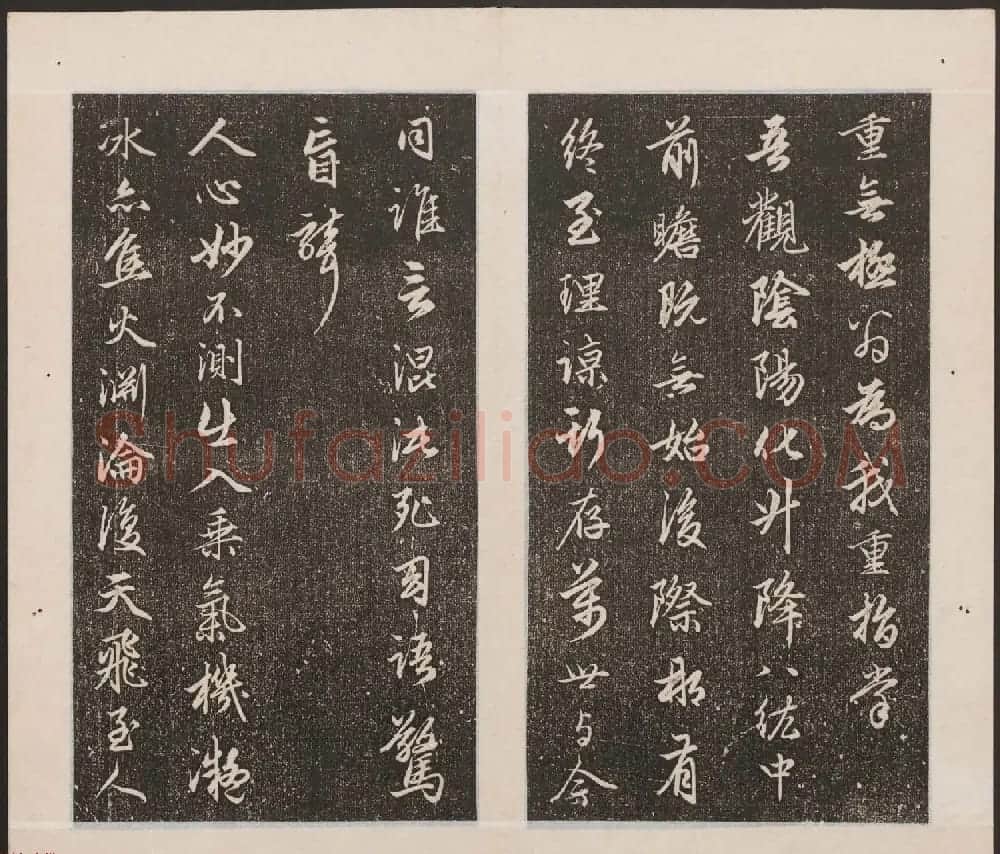 重無極翁為我重指掌
吾觀陰陽化升降八紘中
前瞻既無始後際那有
終至理諒斯存萬世与今
同誰言混沌死幻語驚
盲聾
人心妙不測出入乗氣機凝
冰亦焦火淵淪復天飛至人
Shufaziliao.COM